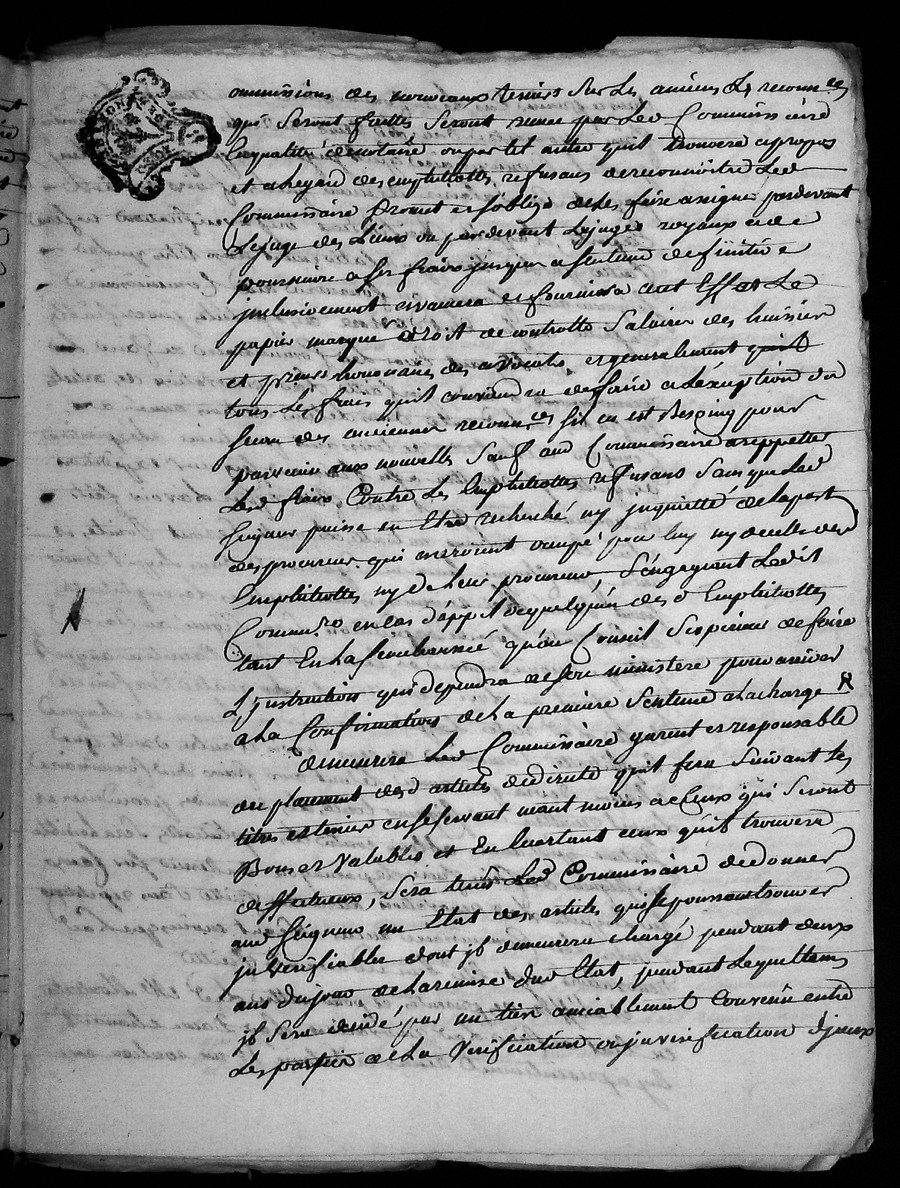 ommissions des nouveaux terriers sur les anciens les reconn.ces
qui seront faittes seront reçue par led Commissaire
en qualité de notaire ou par tel autre quil trouvera apropos
et a legard des emphiteottes refusans de reconnoitre led
Commissaire promet et soblige de les faire assigné pardevant
le juge des lieux ou par devant le juges royaux et de
poursuivre a ses frais jusques a sentence definitive
inclusivement et fournira a cet effet le
papier marqué droit de controlle salaires des huissier
et honoraires des advocats et generalement
tous les frais quil conviendra de faire a lexeption du
sceau des anciennes reconn.ces sil en est besoing pour
parvenir aux nouvelles sauf aud Commissaire a reppetter
led frais contre les emphiteottes refusans sans que led
seigneur puisse en etre recherché ny inquietté de la part
des procureur qui auroint occupé pour luy ny de celle des
emphiteottes ny de leur procureur, sengageant ledit
Commre en cas dappel de quelquun des d emphiteottes
tant en la senechaussée quau Conseil superieur de faire
linstruction qui dependra de son ministere pour arriver
a la confirmation de la premiere sentence a la charge
demeurera led Commissaire garent et responsable
du placement des d articles de directe quil fera suivant les
titres et terrier en se servant neant moins de ceux qui seront
bons et valables et en lecartant ceux quil trouvera
deffectueux, sera tenu led Commissaire de donner
aud seigneur un etat des articles qui se pourront trouver
inverifiables dont il demeurera chargé pendant deux
ans du jour de la remise dud etat, pendant lequel tems
il sera decidé par un tiers amiablement convenu entre
les parties de la verification ou inverification diceux